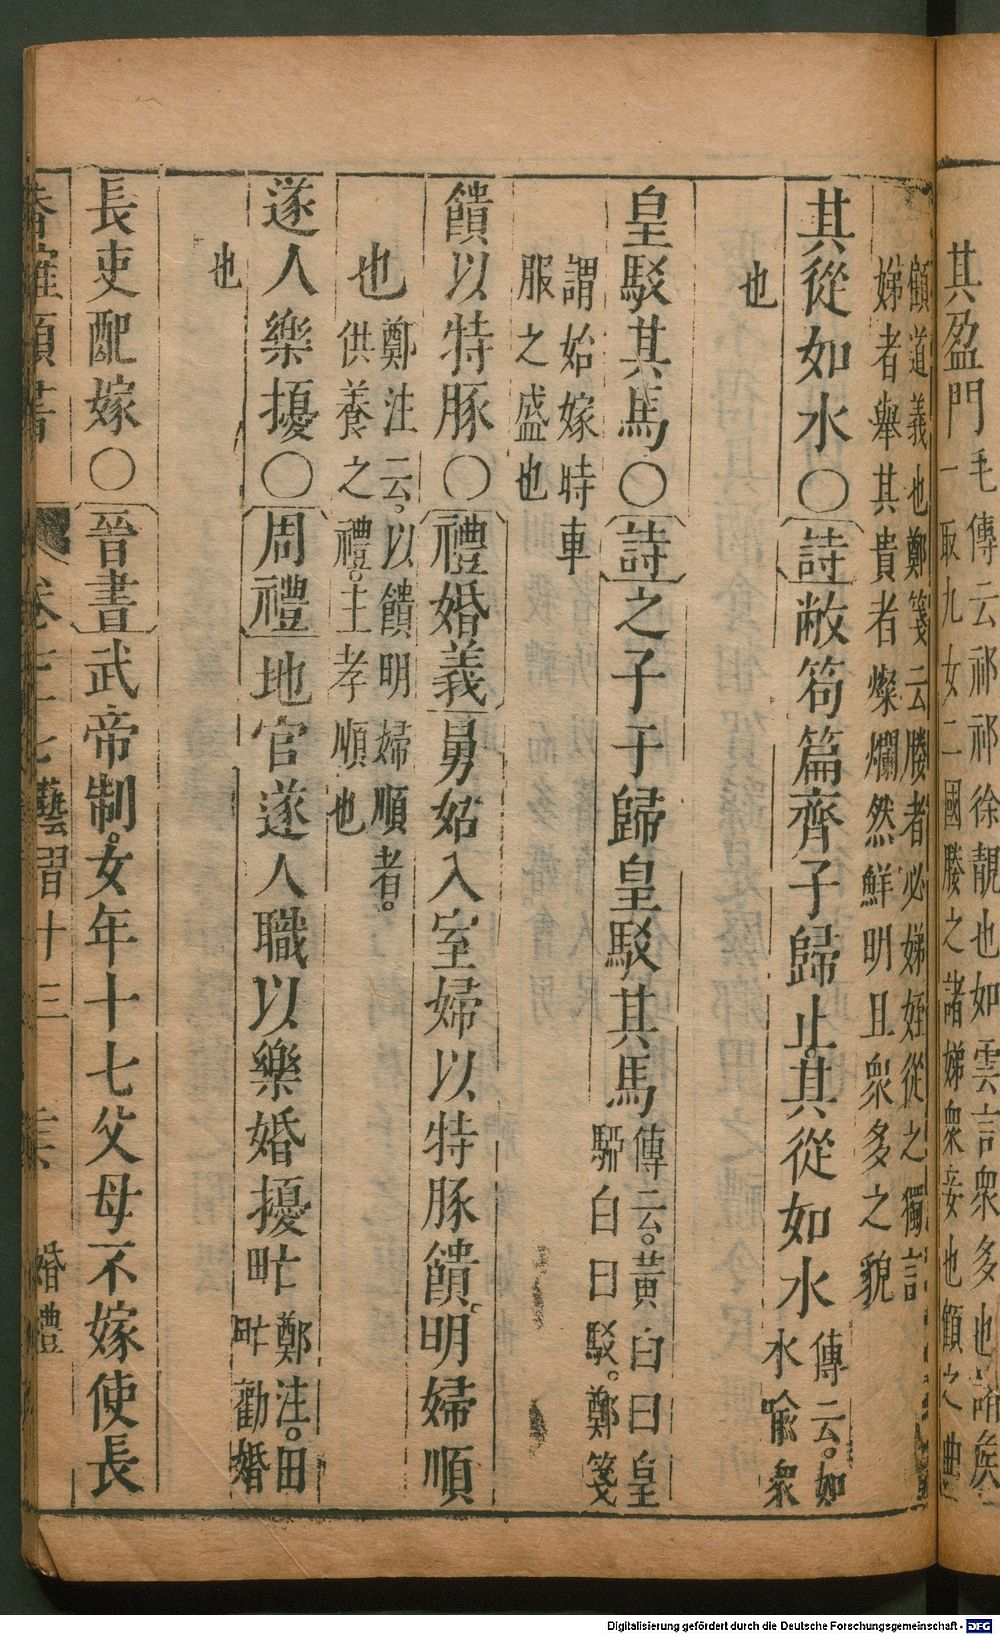 其盈門
毛傳云祁祁徐靚也如雲言衆多也諸侯
一取九女二國媵之諸娣衆妾也顧之曲
顧道義也鄭箋云媵者必娣姪從之獨言
娣者舉其貴者燦爛然鮮明且衆多之貌
其從如水〇詩敝笱篇齊子歸止。其從如水
傳云。如
水喻衆
也
皇駁其馬〇詩之子于歸皇駁其馬
傳云。黃白曰皇
駵白曰駁。鄭箋
謂始嫁時車
服之盛也
饋以特豚〇禮婚義舅姑入室婦以特豚饋。明婦順
也
鄭注云。以饋明婦順者。
供養之禮。主孝順也
遂人樂擾〇周禮地官遂人職以樂婚擾甿
鄭注。田
甿勸婚
也
長吏配嫁〇晉書武帝制。女年十七父母不嫁使長
卷三十七 藝習十三 婚禮
Digitalisierung gefördert durch die Deutsche Forschungsgemeinschaft - DFG